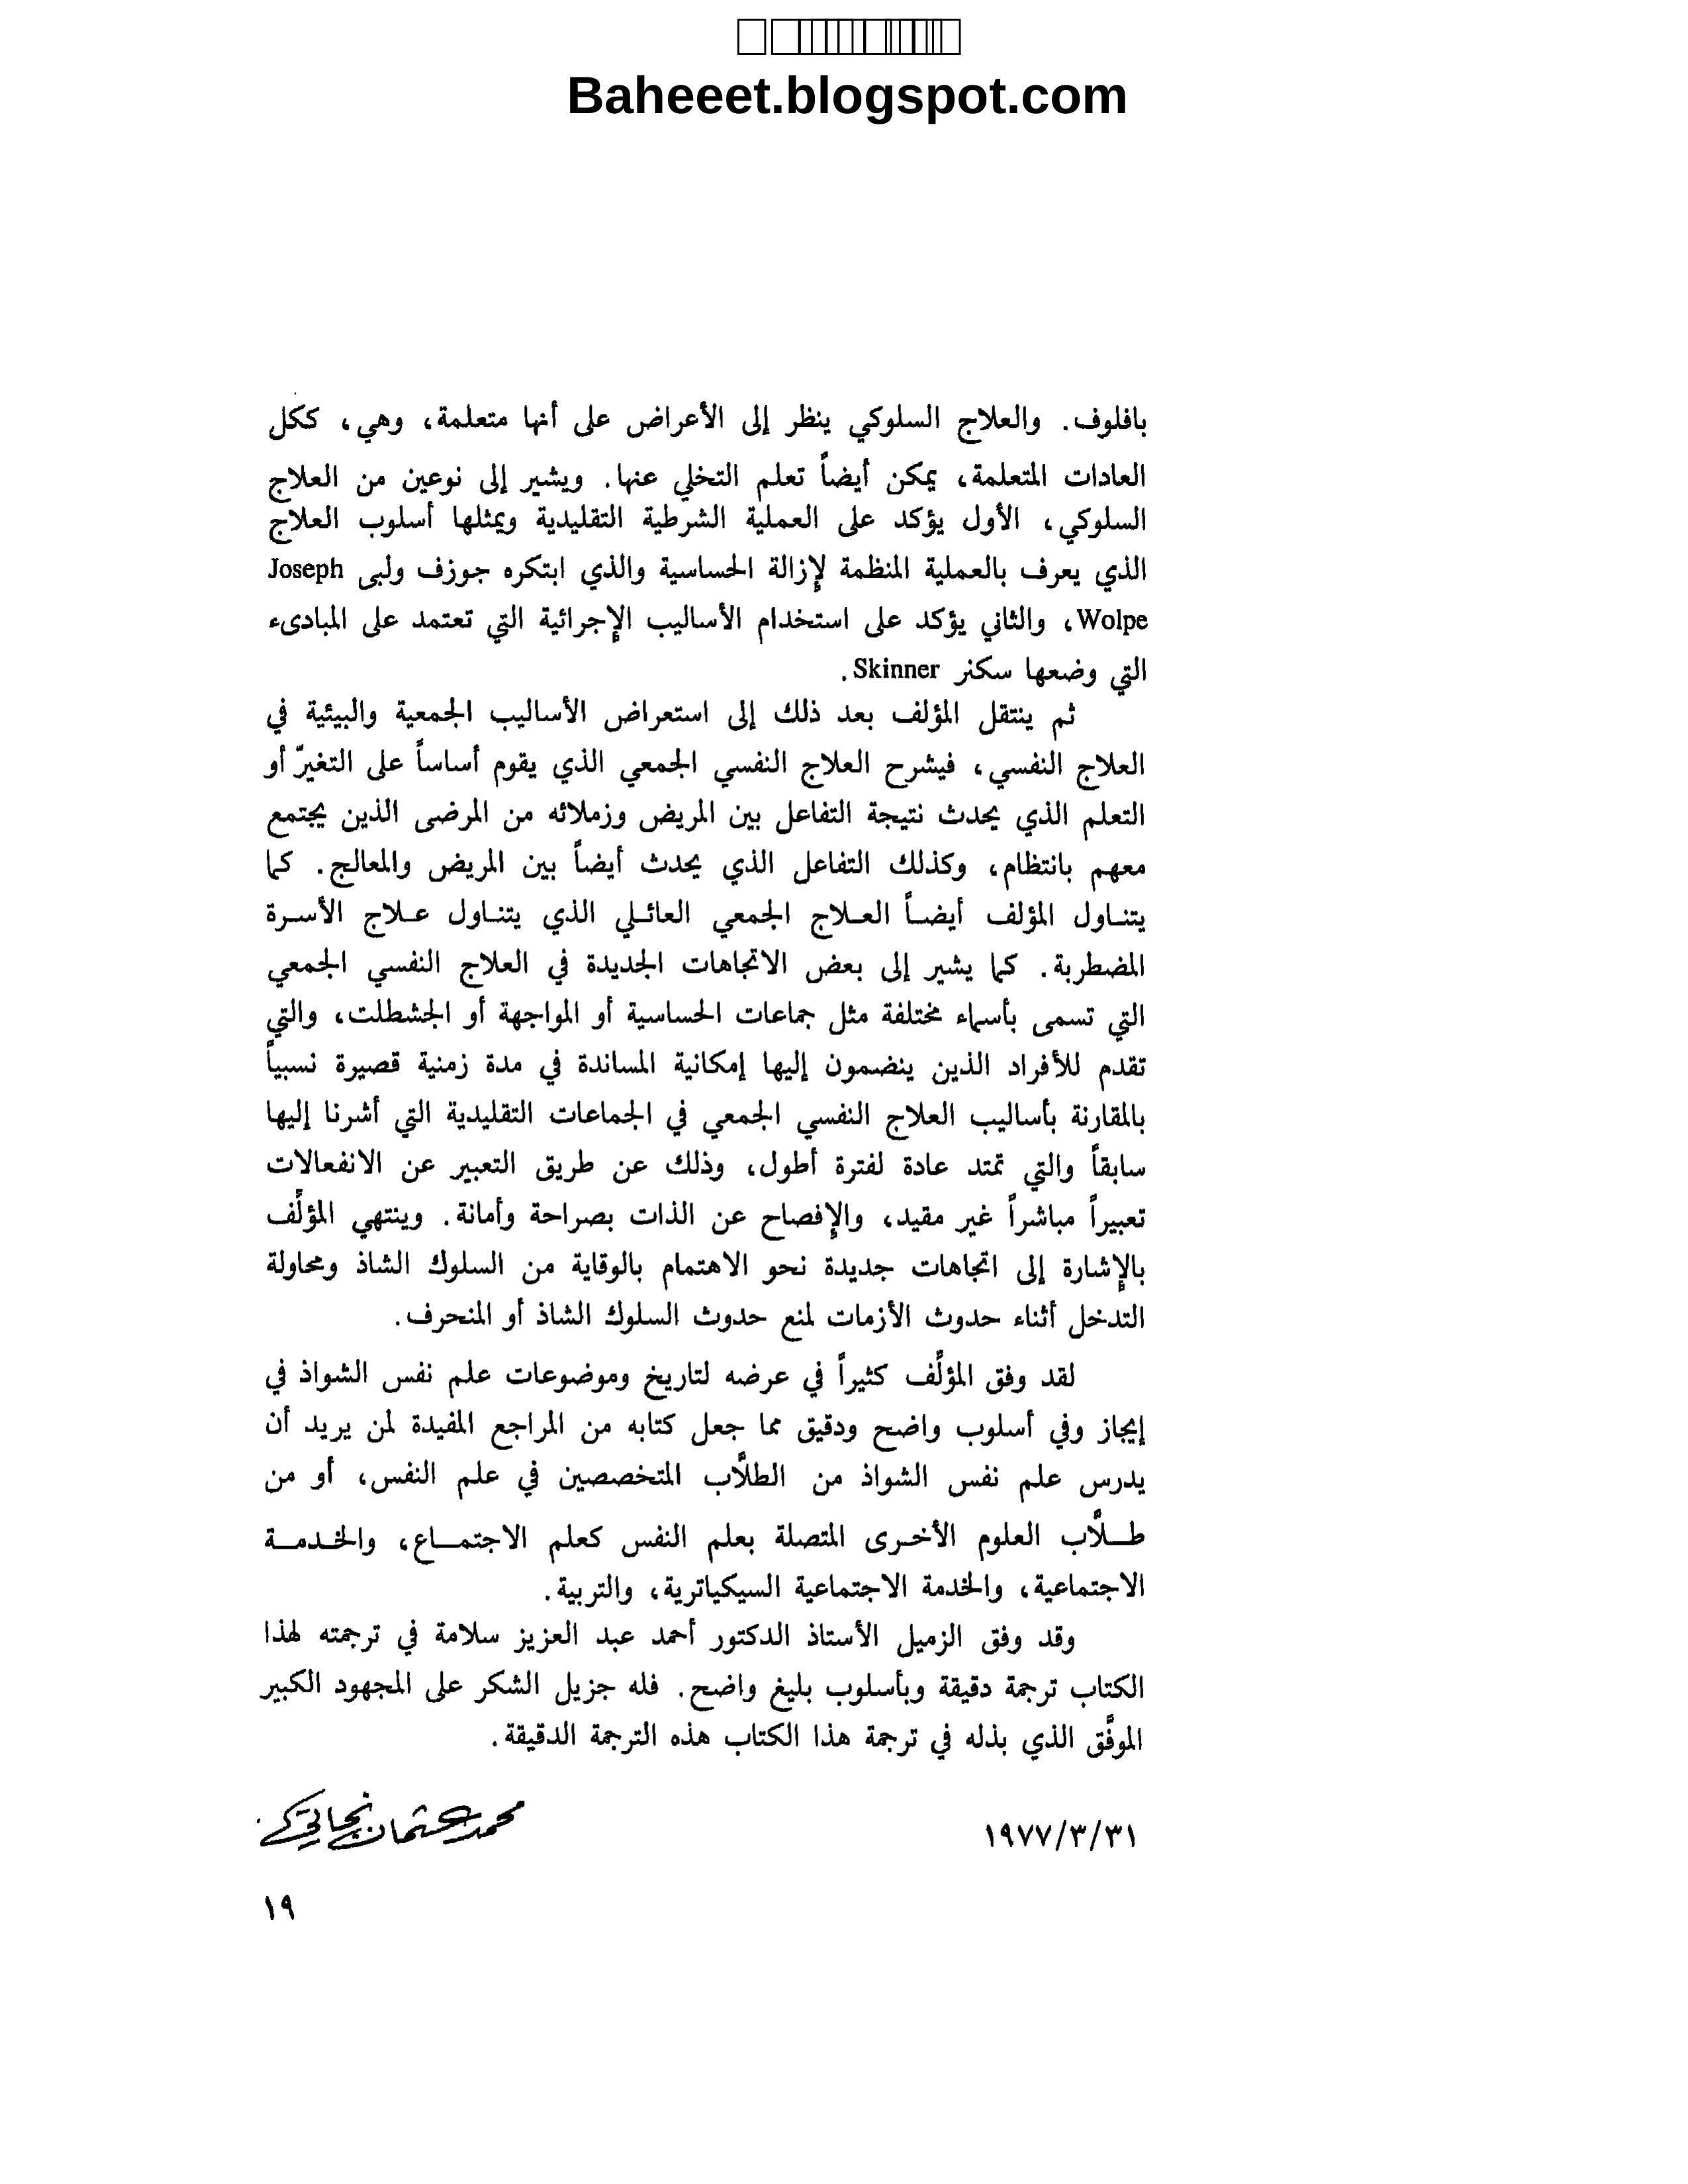 Baheeet.blogspot.com
بافلوف. والعلاج السلوكي ينظر إلى الأعراض على أنها متعلمة، وهي، ككل
العادات المتعلمة، يمكن أيضاً تعلم التخلي عنها. ويشير إلى نوعين من العلاج
السلوكي، الأول يؤكد على العملية الشرطية التقليدية ويمثلها أسلوب العلاج
الذي يعرف بالعملية المنظمة لإزالة الحساسية والذي ابتكره جوزف ولبى Joseph
Wolpe، والثاني يؤكد على استخدام الأساليب الإجرائية التي تعتمد على المبادىء
التي وضعها سكنر Skinner.
ثم ينتقل المؤلف بعد ذلك إلى استعراض الأساليب الجمعية والبيئية في
العلاج النفسي، فيشرح العلاج النفسي الجمعي الذي يقوم أساساً على التغيرّ أو
التعلم الذي يحدث نتيجة التفاعل بين المريض وزملائه من المرضى الذين يجتمع
معهم بانتظام، وكذلك التفاعل الذي يحدث أيضاً بين المريض والمعالج. كما
يتناول المؤلف أيضاً العلاج الجمعي العائلي الذي يتناول علاج الأسرة
المضطربة. كما يشير إلى بعض الاتجاهات الجديدة في العلاج النفسي الجمعي
التي تسمى بأسماء مختلفة مثل جماعات الحساسية أو المواجهة أو الجشطلت، والتي
تقدم للأفراد الذين ينضمون إليها إمكانية المساندة في مدة زمنية قصيرة نسبياً
بالمقارنة بأساليب العلاج النفسي الجمعي في الجماعات التقليدية التي أشرنا إليها
سابقاً والتي تمتد عادة لفترة أطول، وذلك عن طريق التعبير عن الانفعالات
تعبيراً مباشراً غير مقيد، والإفصاح عن الذات بصراحة وأمانة. وينتهي المؤلِّف
بالإشارة إلى اتجاهات جديدة نحو الاهتمام بالوقاية من السلوك الشاذ ومحاولة
التدخل أثناء حدوث الأزمات لمنع حدوث السلوك الشاذ أو المنحرف.
لقد وفق المؤلِّف كثيراً في عرضه لتاريخ وموضوعات علم نفس الشواذ في
إيجاز وفي أسلوب واضح ودقيق مما جعل كتابه من المراجع المفيدة لمن يريد أن
يدرس علم نفس الشواذ من الطلاَّب المتخصصين في علم النفس، أو من
طـلاَّب العلوم الأخرى المتصلة بعلم النفس كعلم الاجتمـاع، والخدمـة
الاجتماعية، والخدمة الاجتماعية السيكياترية، والتربية.
وقد وفق الزميل الأستاذ الدكتور أحمد عبد العزيز سلامة في ترجمته لهذا
الكتاب ترجمة دقيقة وبأسلوب بليغ واضح. فله جزيل الشكر على المجهود الكبير
الموفَّق الذي بذله في ترجمة هذا الكتاب هذه الترجمة الدقيقة.
١٩٧٧/٣/٣١ محمد عثمان نجاتي
١٩